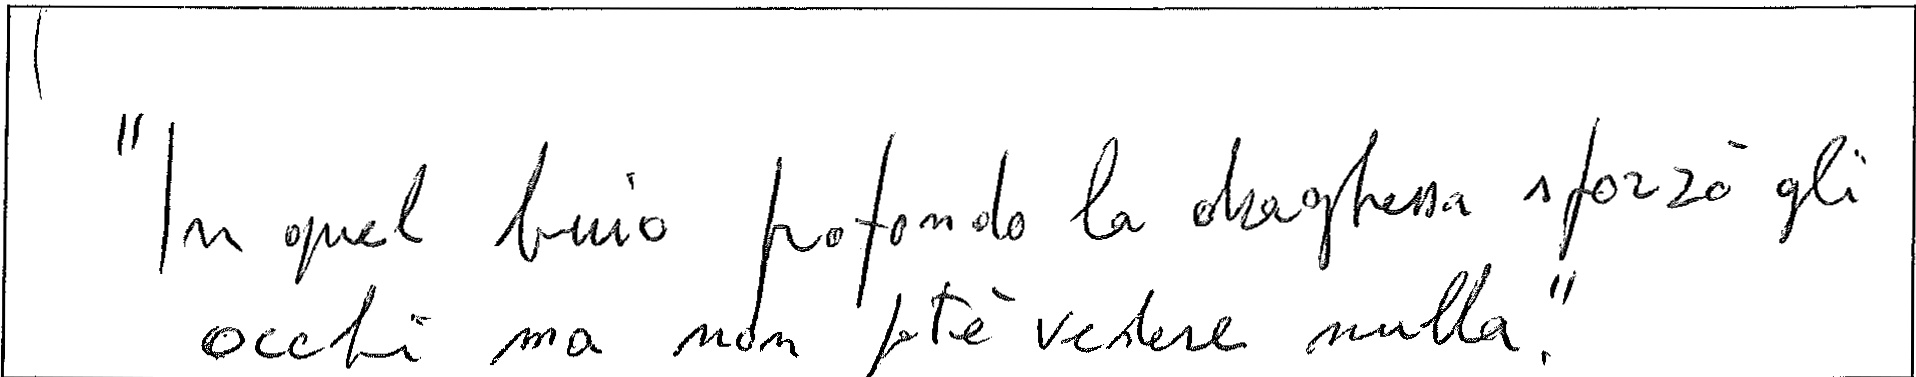 "In quel buio profondo la draghessa sforzò gli
occhi ma non potè vedere nulla."